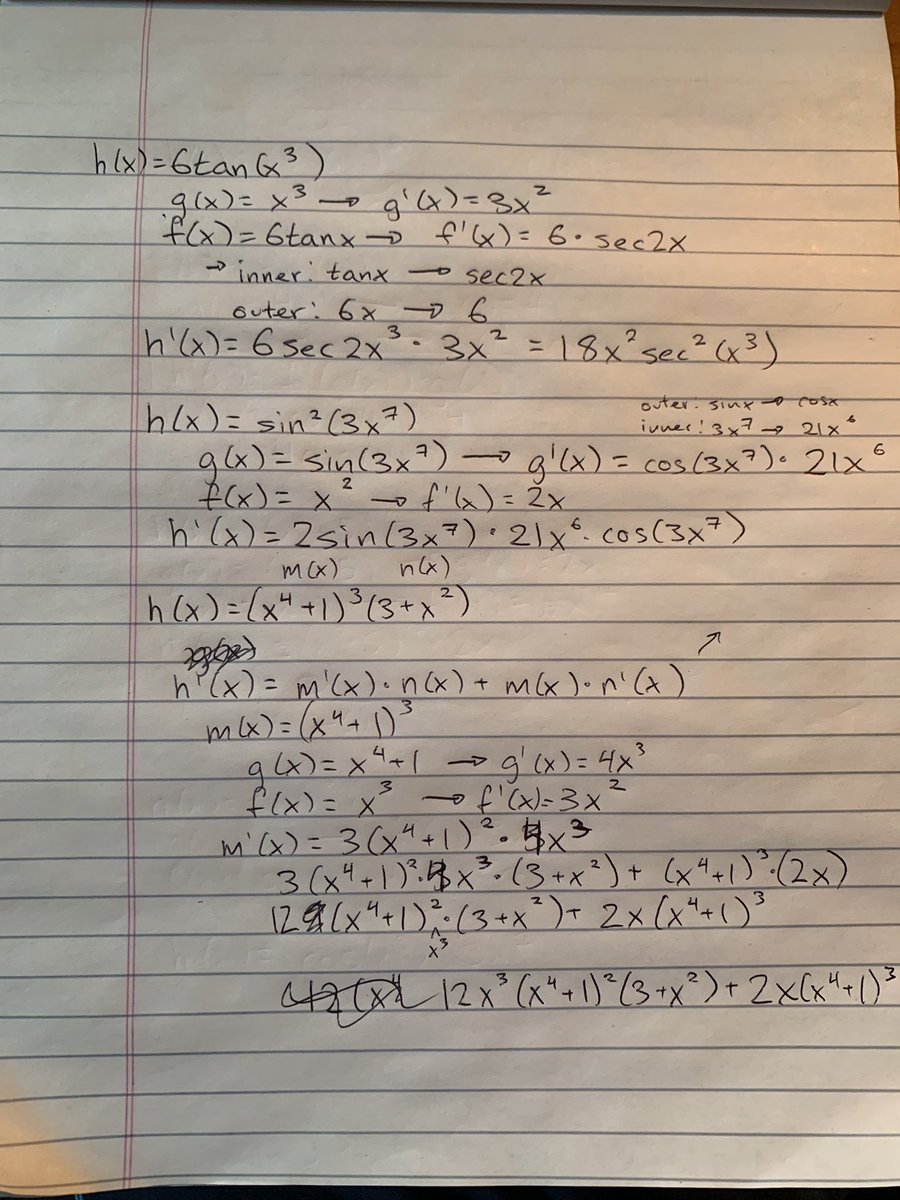 h(x)=6tan(x³)
g(x)= x³ → g'(x)=3x²
f(x)=6tanx → f'(x)= 6·sec2x
→ inner: tanx → sec2x
outer: 6x → 6
h'(x)= 6sec2x³·3x² = 18x²sec²(x³)
outer: sinx → cosx
h(x)= sin²(3x⁷)
inner: 3x⁷ → 21x⁶
g(x)= sin(3x⁷) → g'(x)= cos(3x⁷)·21x⁶
f(x)= x² → f'(x)=2x
h'(x)=2sin(3x⁷)·21x⁶·cos(3x⁷)
m(x) n(x)
h(x)=(x⁴+1)³(3+x²)
↗
h'(x)= m'(x)·n(x)+ m(x)·n'(x)
m(x)=(x⁴+1)³
g(x)= x⁴+1 → g'(x)=4x³
f(x)= x³ → f'(x)=3x²
m'(x)=3(x⁴+1)²·4x³
3(x⁴+1)²·4x³·(3+x²)+ (x⁴+1)³·(2x)
12(x⁴+1)²·(3+x²)+ 2x(x⁴+1)³
^
x³
12(x⁴ 12x³(x⁴+1)²(3+x²)+2x(x⁴+1)³